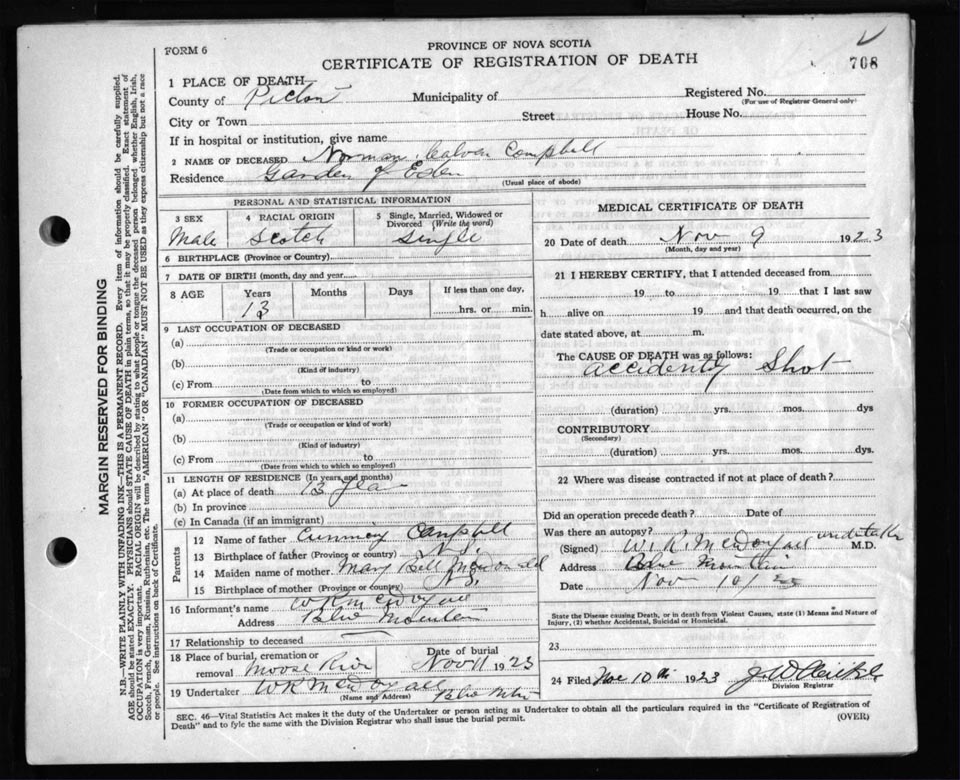 FORM 6
PROVINCE OF NOVA SCOTIA
CERTIFICATE OF REGISTRATION OF DEATH
708
1 PLACE OF DEATH
County of Pictou Municipality of Registered No.
(For use of Registrar General only)
City or Town Street House No.
If in hospital or institution, give name
2 NAME OF DECEASED Norman Calven Campbell
Residence Garden of Eden
(Usual place of abode)
PERSONAL AND STATISTICAL INFORMATION
3 SEX 4 RACIAL ORIGIN 5 Single, Married, Widowed or Divorced (Write the word)
Male Scotch Single
6 BIRTHPLACE (Province or Country)
7 DATE OF BIRTH (month, day and year)
8 AGE Years Months Days If less than one day,
13 hrs. or min.
9 LAST OCCUPATION OF DECEASED
(a)
(Trade or occupation or kind of work)
(b)
(Kind of industry)
(c) From to
(Date from which to which so employed)
10 FORMER OCCUPATION OF DECEASED
(a)
(Trade or occupation or kind of work)
(b)
(Kind of industry)
(c) From to
(Date from which to which so employed)
11 LENGTH OF RESIDENCE (In years and months)
(a) At place of death 13
(b) In province
(c) In Canada (if an immigrant)
Parents
12 Name of father Campbell
13 Birthplace of father (Province or country) N.S.
14 Maiden name of mother Mary Bell McDonald
15 Birthplace of mother (Province or country) N.S.
16 Informant's name W R McDougall
Address Blue Mountain
17 Relationship to deceased
18 Place of burial, cremation or removal Moose River Date of burial Nov 11 1923
19 Undertaker W R McDougall Blue Mtn
(Name and Address)
MEDICAL CERTIFICATE OF DEATH
20 Date of death Nov 9 1923
(Month, day and year)
21 I HEREBY CERTIFY, that I attended deceased from
19 to 19 that I last saw
h alive on 19 and that death occurred, on the
date stated above, at m.
The CAUSE OF DEATH was as follows:
accidently Shot
(duration) yrs. mos. dys
CONTRIBUTORY
(Secondary)
(duration) yrs. mos. dys.
22 Where was disease contracted if not at place of death?
Did an operation precede death? Date of
Was there an autopsy?
(Signed) W. R. McDougall undertaker M.D.
Address Blue Mountain
Date Nov 10/23
State the Disease causing Death, or in death from Violent Causes, state (1) Means and Nature of
Injury, (2) whether Accidental, Suicidal or Homicidal.
23
24 Filed Nov 10th 1923
Division Registrar
SEC. 46—Vital Statistics Act makes it the duty of the Undertaker or person acting as Undertaker to obtain all the particulars required in the "Certificate of Registration of
Death" and to fyle the same with the Division Registrar who shall issue the burial permit.
(OVER)
MARGIN RESERVED FOR BINDING
N.B.—WRITE PLAINLY WITH UNFADING INK—THIS IS A PERMANENT RECORD. Every item of information should be carefully supplied.
AGE should be stated EXACTLY. PHYSICIANS should STATE CAUSE OF DEATH in plain terms, so that it may be properly classified. Exact statement of
OCCUPATION is very important. RACIAL ORIGIN will be described by stating to what people or tongue the deceased person belonged whether English, Irish,
Scotch, French, German, Russian, Ruthenian, etc. The terms "AMERICAN" OR "CANADIAN" MUST NOT BE USED as they express citizenship but not a race
or people. See instructions on back of Certificate.